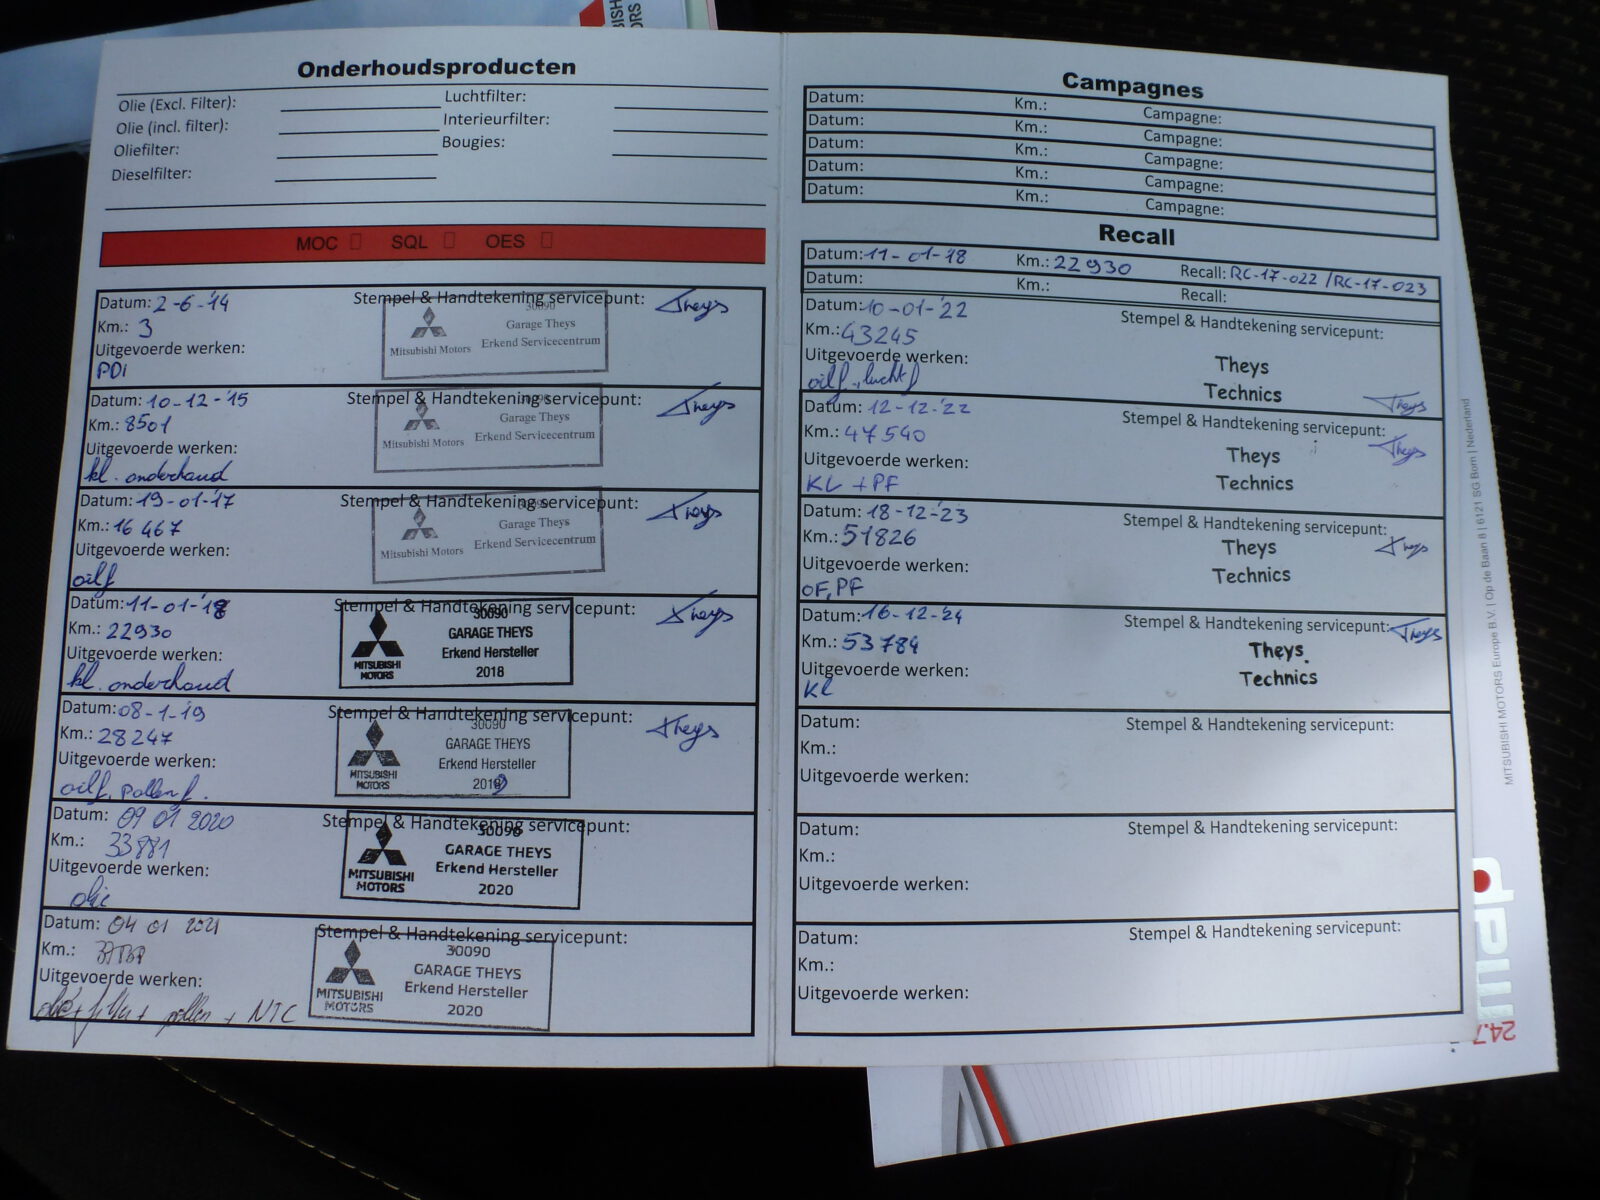 Onderhoudsproducten
Olie (Excl. Filter):
Luchtfilter:
Olie (incl. filter):
Interieurfilter:
Oliefilter:
Bougies:
Dieselfilter:
MOC SQL OES
Datum: 2-6-'14
Stempel & Handtekening servicepunt:
Theys
Km.: 3
30090
Garage Theys
Mitsubishi Motors Erkend Servicecentrum
Uitgevoerde werken:
PDi
Datum: 10-12-'15
Stempel & Handtekening servicepunt:
Theys
Km.: 8501
Garage Theys
Mitsubishi Motors Erkend Servicecentrum
Uitgevoerde werken:
kl. onderhoud
Datum: 19-01-'17
Stempel & Handtekening servicepunt:
Theys
Km.: 16 467
Garage Theys
Mitsubishi Motors Erkend Servicecentrum
Uitgevoerde werken:
oilf
Datum: 11-01-'18
Stempel & Handtekening servicepunt:
Theys
Km.: 22930
30090
GARAGE THEYS
Erkend Hersteller
2018
MITSUBISHI
MOTORS
Uitgevoerde werken:
kl. onderhoud
Datum: 08-1-'19
Stempel & Handtekening servicepunt:
Theys
Km.: 28247
30090
GARAGE THEYS
Erkend Hersteller
2019
MITSUBISHI
MOTORS
Uitgevoerde werken:
oilf, pollenf.
Datum: 09 01 2020
Stempel & Handtekening servicepunt:
Km.: 33881
30090
GARAGE THEYS
Erkend Hersteller
2020
MITSUBISHI
MOTORS
Uitgevoerde werken:
olie
Datum: 04 01 2021
Stempel & Handtekening servicepunt:
Km.:
30090
GARAGE THEYS
Erkend Hersteller
2020
MITSUBISHI
MOTORS
Uitgevoerde werken:
pollen + NTC
Campagnes
Datum: Km.: Campagne:
Datum: Km.: Campagne:
Datum: Km.: Campagne:
Datum: Km.: Campagne:
Datum: Km.: Campagne:
Recall
Datum: 11-01-18 Km.: 22930 Recall: RC-17-022 /RC-17-023
Datum: Km.: Recall:
Datum: 10-01-'22
Stempel & Handtekening servicepunt:
Km.: 43245
Uitgevoerde werken:
oilf., luchtf
Theys
Technics
Theys
Datum: 12-12-'22
Stempel & Handtekening servicepunt:
Km.: 47540
Uitgevoerde werken:
KL + PF
Theys
Technics
Theys
Datum: 18-12-'23
Stempel & Handtekening servicepunt:
Km.: 51826
Uitgevoerde werken:
OF, PF
Theys
Technics
Theys
Datum: 16-12-'24
Stempel & Handtekening servicepunt:
Theys
Km.: 53784
Uitgevoerde werken:
KL
Theys
Technics
Datum:
Stempel & Handtekening servicepunt:
Km.:
Uitgevoerde werken:
Datum:
Stempel & Handtekening servicepunt:
Km.:
Uitgevoerde werken:
Datum:
Stempel & Handtekening servicepunt:
Km.:
Uitgevoerde werken:
MITSUBISHI MOTORS Europe B.V. | Op de Baan 8 | 6121 SG Born | Nederland